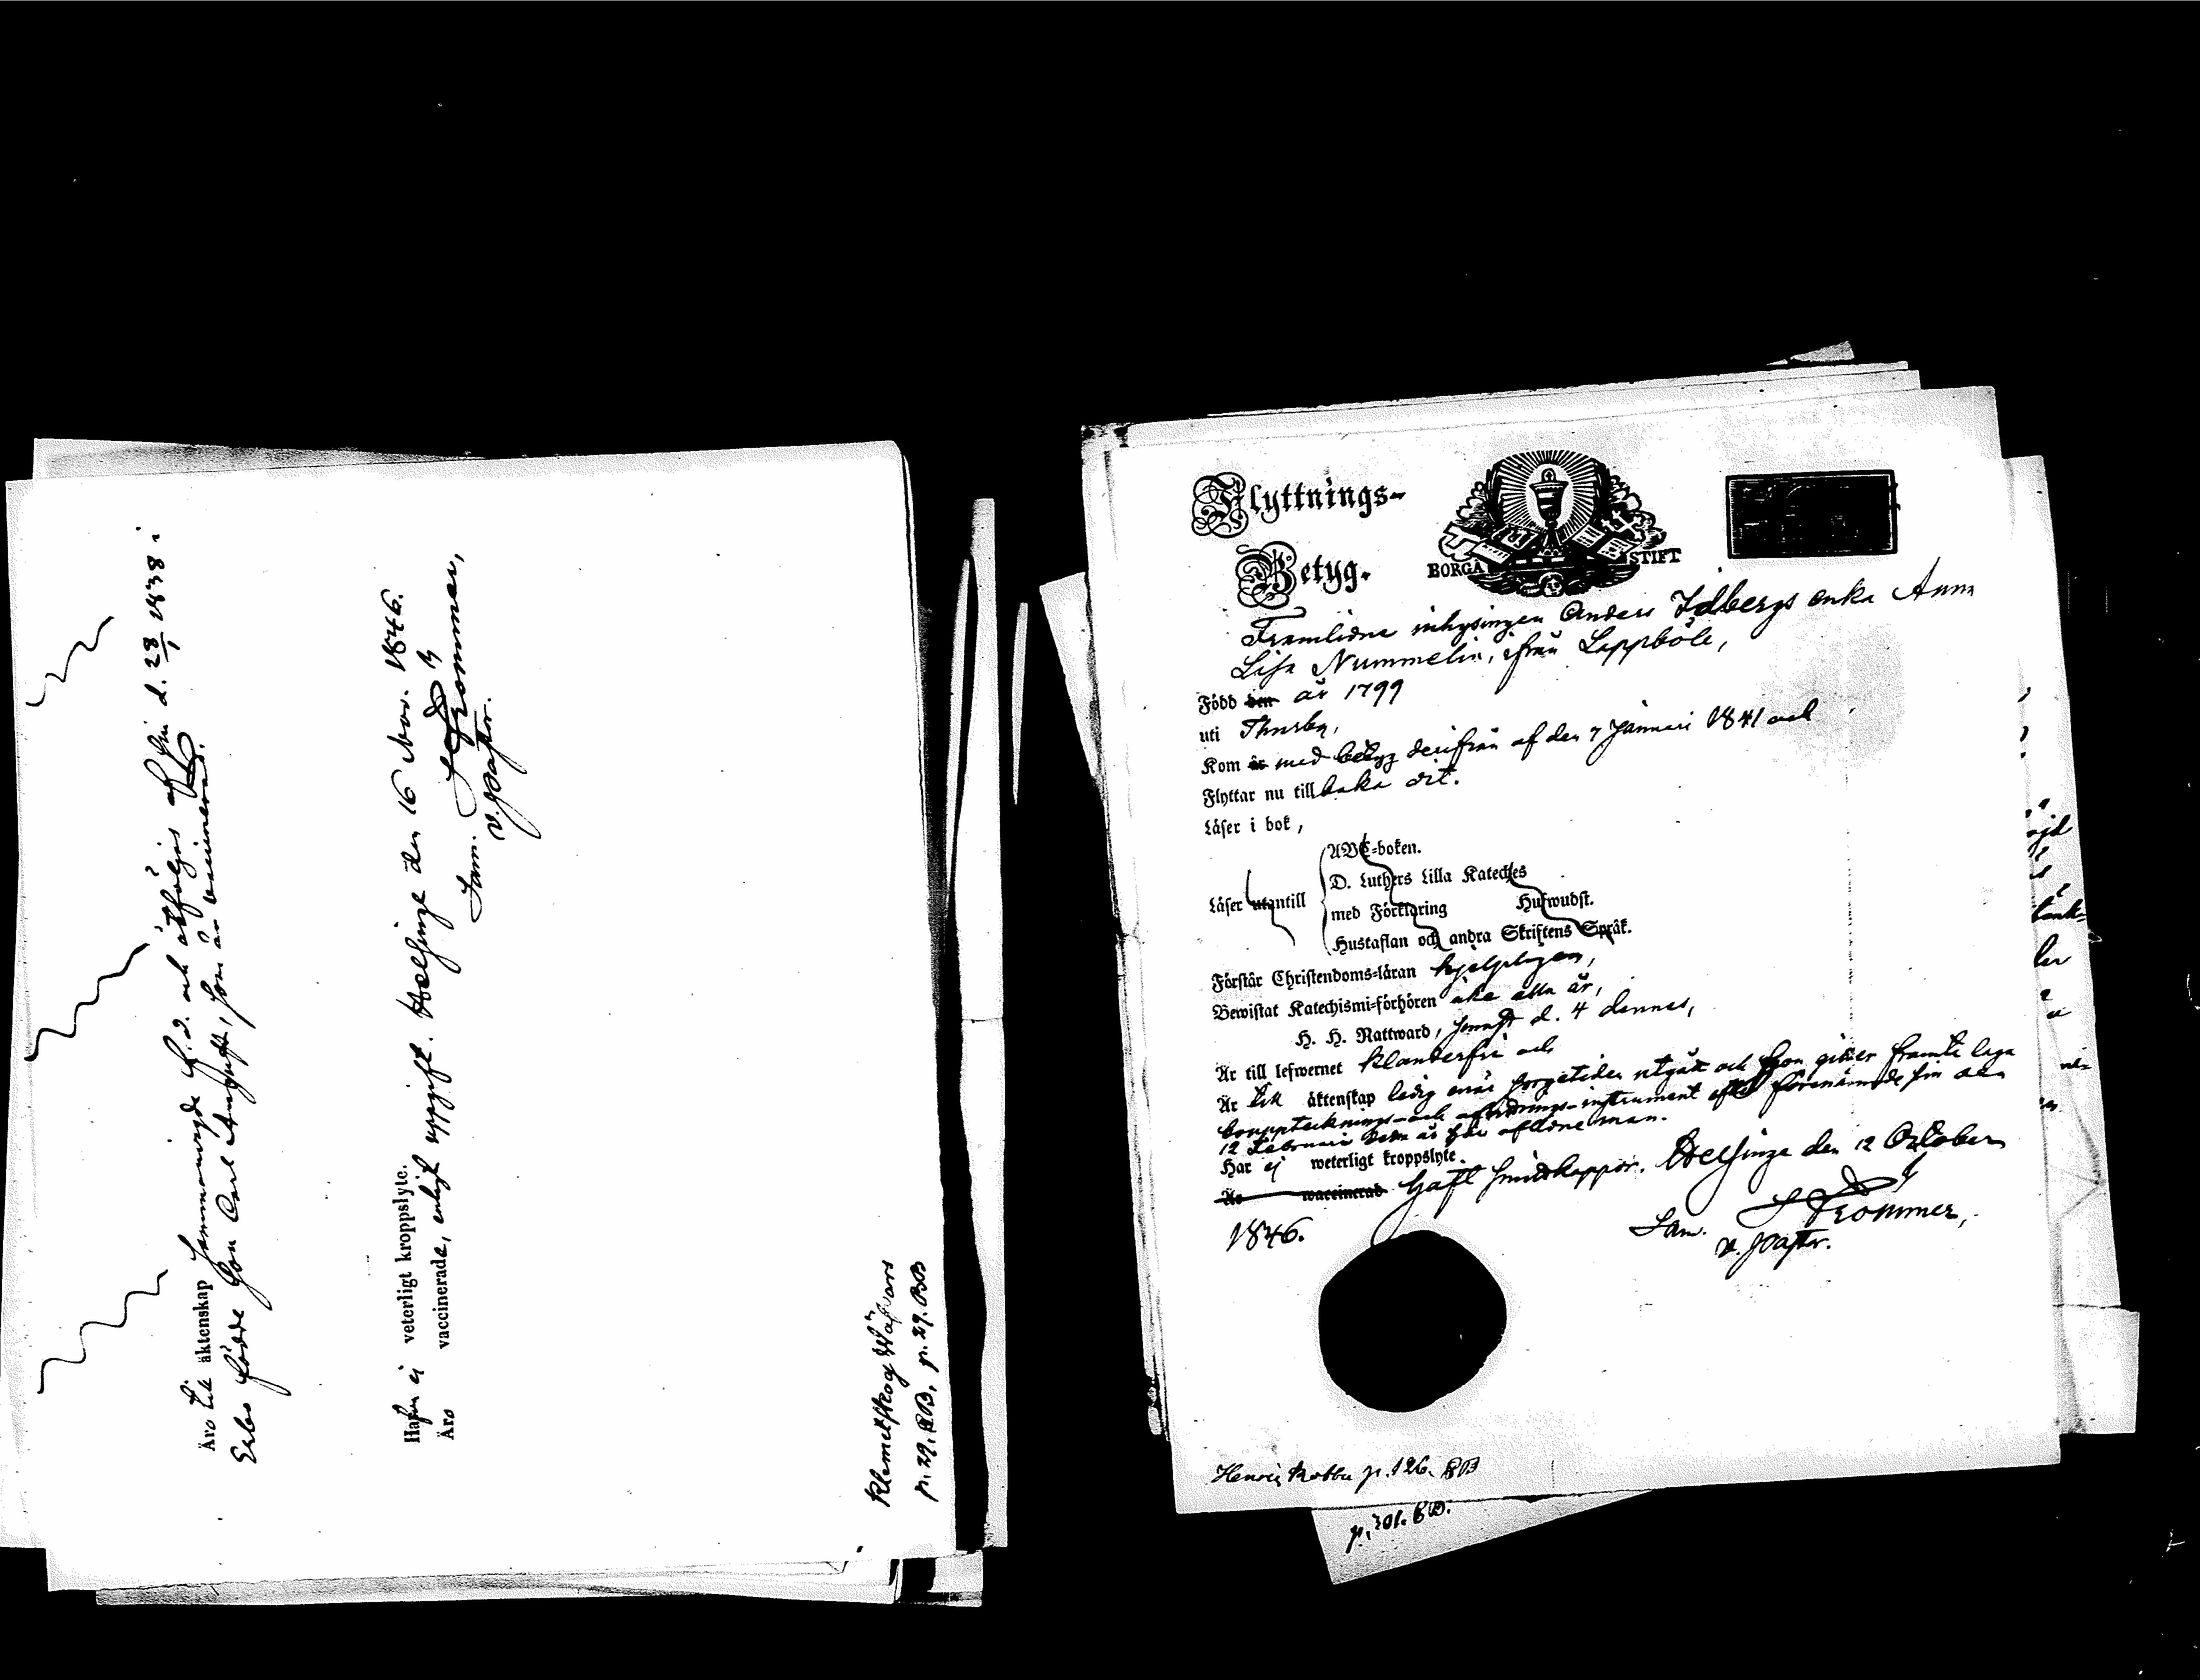 Äro till äktenskap sammanvigde f. d. och åtföljas af sin d. 28/1 1838 i
Esbo födde son Carl August, som är vaccinerad.
Hafva ej veterligt kroppslyte.
Äro vaccinerade, enligt uppgift. Helsinge den 16 Nov. 1846.
Sam. Strömmer,
v. Pastor.
Klemetskog
p. 29. RB, p. 29. BB
Flyttnings-
Betyg.
BORGÅ STIFT
Framlidne inhysingen Anders Idbergs enka Anna
Lisa Nummelin, ifrån Lappböle,
Född den år 1799
uti Thusby,
Kom är med betyg derifrån af den 7 Januari 1841 och
Flyttar nu till baka dit.
Läser i bok,
Läser utantill
ABC-boken.
D. Luthers Lilla Kateches
med Förklaring Hufwudst.
Hustaflan och andra Skriftens Språk.
Förstår Christendoms-läran hjelpligen,
Bewistat Katechismi-förhören icke alla år,
H. H. Nattward, sednast d. 4 dennes,
Är till lefwernet klanderfri och
Är till äktenskap ledig enär sorgetiden utgått och hon gitter framte laga
bouppteknings- och afvittrings-instrument efter förenämnde sin den
12 Februari detta år aflidne man.
Har ej weterligt kroppslyte.
Är waccinerad haft smittkoppor. Helsinge den 12 October
1846.
Sam. Strömmer,
v. Pastor.
Henrik Robbu p. 126. BB
p. 301. BB.